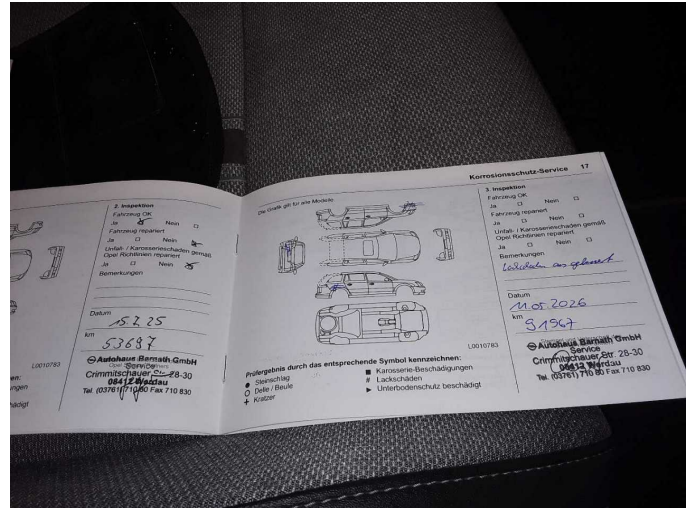 2. Inspektion
Fahrzeug OK
Ja Nein
Fahrzeug repariert
Ja Nein
Unfall- / Karosserieschaden gemäß
Opel Richtlinien repariert
Ja Nein
Bemerkungen
Datum
15.7.25
km
53697
Autohaus Barnath GmbH
Service
Crimmitschauer Str. 28-30
08412 Werdau
Tel. (03761) 710 80 Fax 710 830
L0010783
Korrosionsschutz-Service 17
Die Grafik gilt für alle Modelle
L0010783
Prüfergebnis durch das entsprechende Symbol kennzeichnen:
● Steinschlag
O Delle / Beule
+ Kratzer
■ Karosserie-Beschädigungen
# Lackschäden
► Unterbodenschutz beschädigt
3. Inspektion
Fahrzeug OK
Ja Nein
Fahrzeug repariert
Ja Nein
Unfall- / Karosserieschaden gemäß
Opel Richtlinien repariert
Ja Nein
Bemerkungen
Datum
11.05.2026
km
91967
Autohaus Barnath GmbH
Service
Crimmitschauer Str. 28-30
08412 Werdau
Tel. (03761) 710 80 Fax 710 830